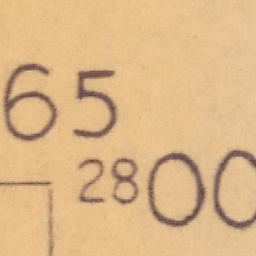 65
2800